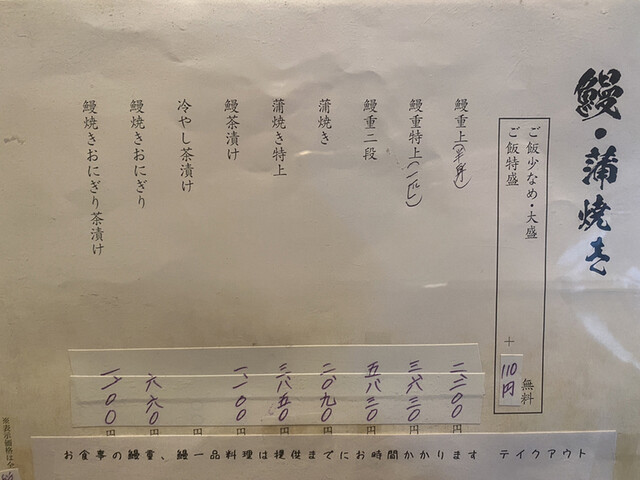 鰻・蒲焼き
ご飯少なめ・大盛 無料
ご飯特盛 + 110円
鰻重上(半身) 二、二〇〇円
鰻重特上(一匹) 三、六三〇円
鰻重二段 五、八三〇円
蒲焼き 二、〇九〇円
蒲焼き特上 三、八五〇円
鰻茶漬け 一、一〇〇円
冷やし茶漬け 円
鰻焼きおにぎり 六六〇円
鰻焼きおにぎり茶漬け 一、一〇〇円
お食事の鰻重、鰻一品料理は提供までにお時間かかります テイクアウト
※表示価格は全